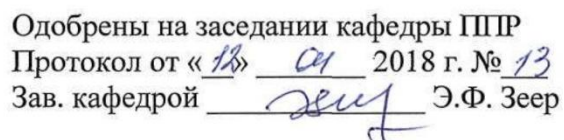 Одобрены на заседании кафедры ППР
Протокол от «12» 04 2018 г. № 13
Зав. кафедрой Э.Ф. Зеер